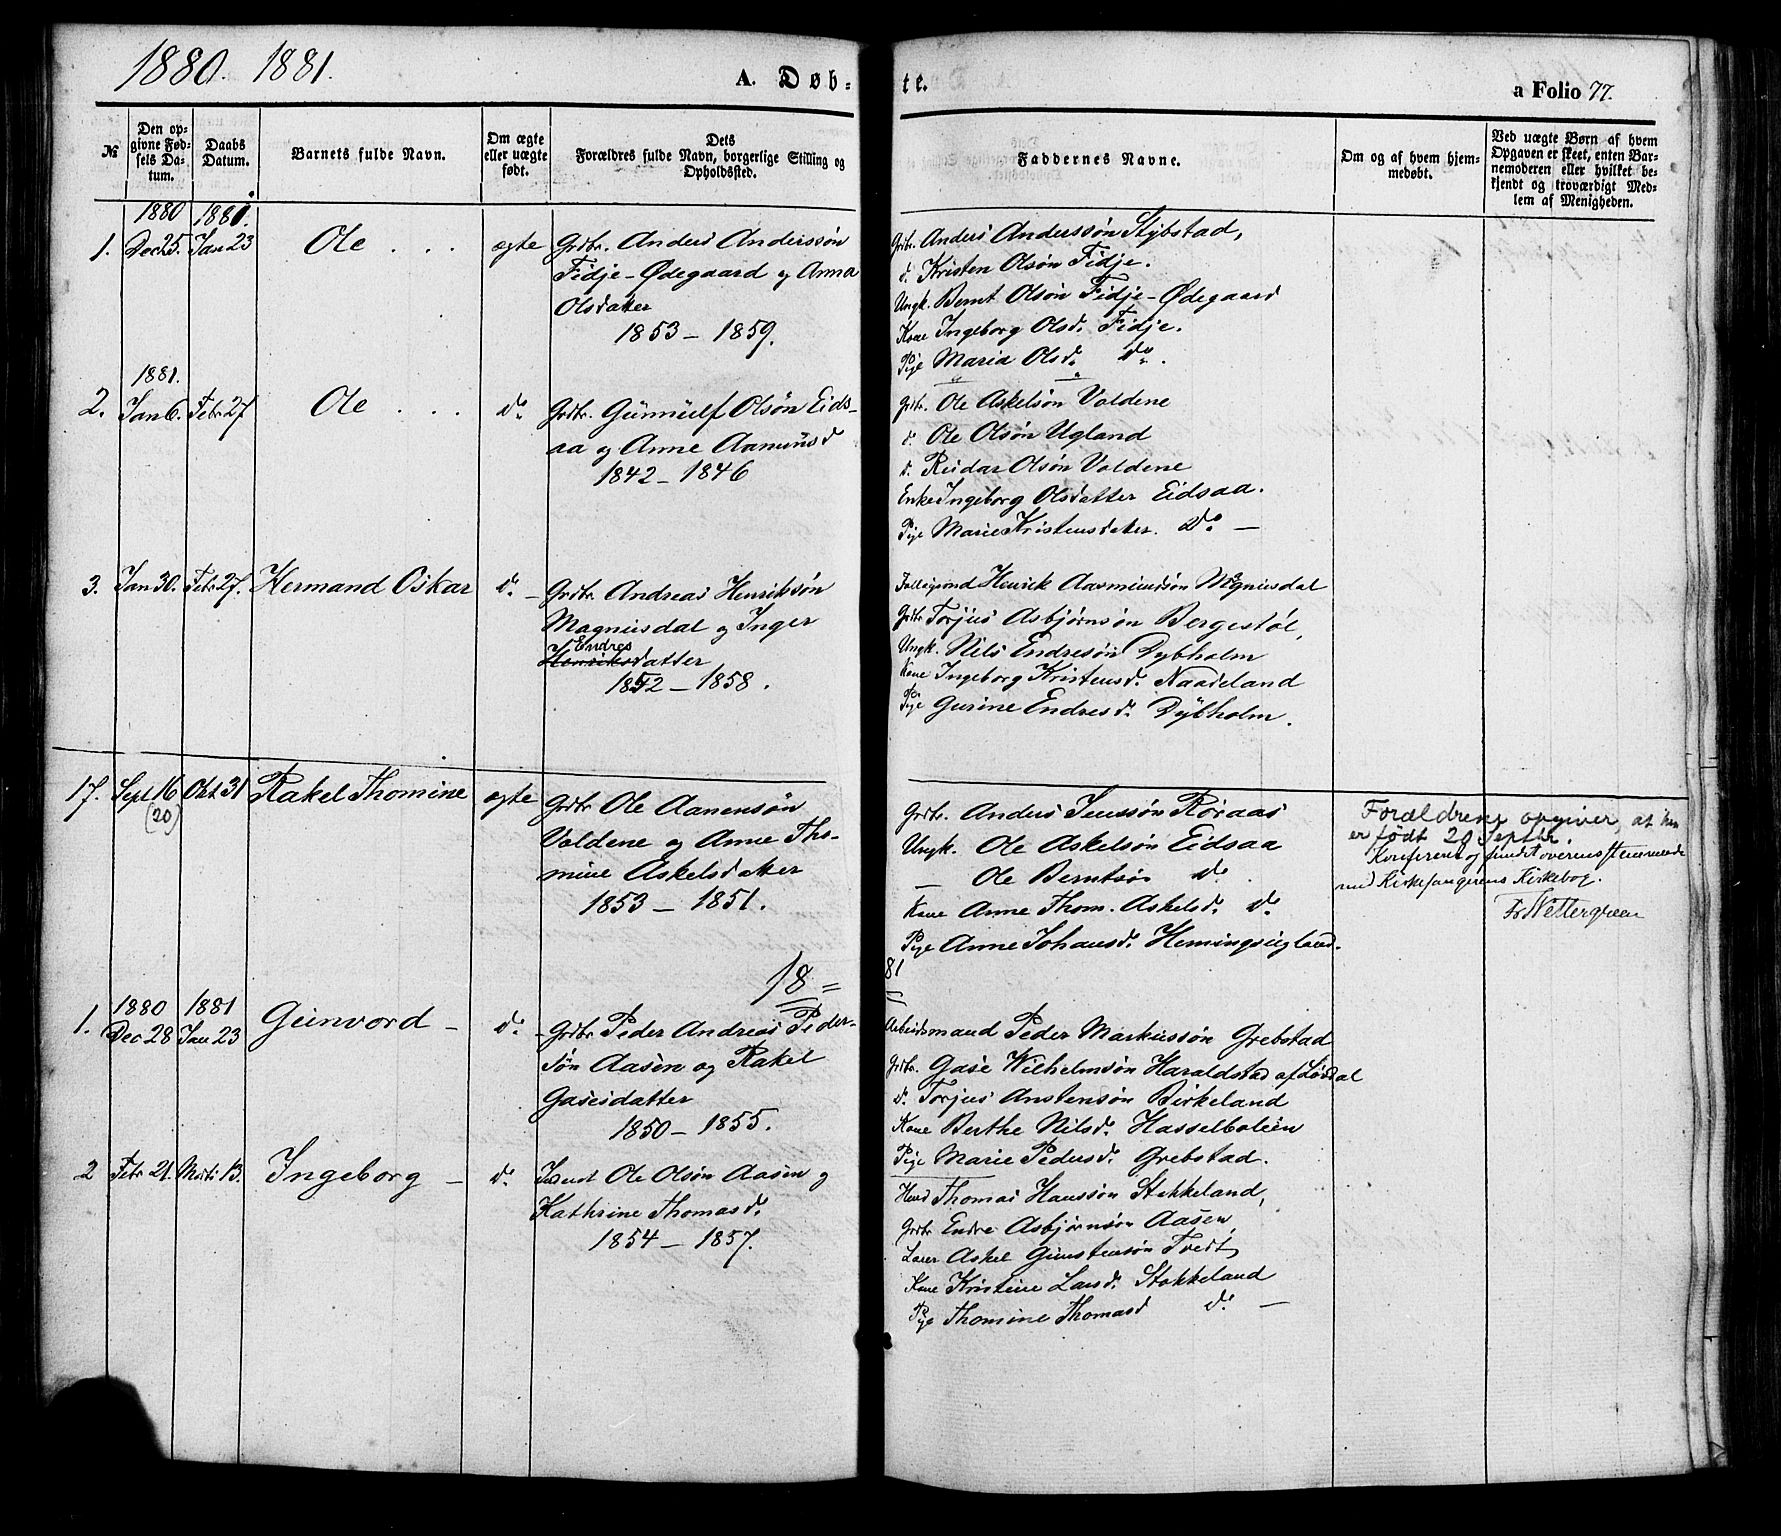 1880. 1881.
A. Døb-
te.
a Folio 77.
№
Den op-
givne Fød-
sels Da-
tum.
Daabs
Datum.
Barnets fulde Navn.
Om ægte
eller uægte
født.
Dets
Forældres fulde Navn, borgerlige Stilling og
Opholdssted.
Faddernes Navne.
Om og af hvem hjem-
medøbt.
Ved uægte Børn af hvem
Opgaven er skeet, enten Bar-
nemoderen eller hvilket be-
kjendt og troværdigt Med-
lem af Menigheden.
1880 1881.
1. Dec 25. Jan 23 Ole . . . ægte Grdbr. Anders Anderssøn
Fidje-Ødegaard og Anna
Olsdatter
1853 – 1859.
Grdbr. Anders Anderssøn Stybstad,
do. Kristen Olsøn Fidje.
Ungk. Bernt Olsøn Fidje-Ødegaard
Kone Ingeborg Olsd. Fidje.
Pige Maria Olsd. do.
1881.
2. Jan 6. Febr 27 Ole . . . do. Grdbr. Gunnulf Olsøn Eids-
aa og Anne Aamunsd
1842 – 1846
Grdbr. Ole Askelsøn Voldene
do. Ole Olsøn Ugland
do. Reidar Olsøn Voldene
Enke Ingeborg Olsdatter Eidsaa.
Pige Marie Kristensdatter. do. —
3. Jan 30. Febr 27. Hermand Oskar do. – Grdbr. Andreas Henriksøn
Magnusdal og Inger
Endres
Henriksdatter
1852 – 1858.
Henrik Aasmundsøn Magnusdal
Grdbr Torjus Asbjørnsøn Bergestøl,
Ungk. Nils Endresøn Dybholm
Kone Ingeborg Kristensd. Naadeland
Pige Gurine Endresd. Dybholm.
17. Sept 16 Okt 31 Rakel Thomine ægte Grdbr Ole Aanensøn
(20)
Voldene og Anne Tho-
mine Askelsdatter
1853 – 1851.
Grdbr. Anders Jenssøn Røraas
Ungk. Ole Askelsøn Eidsaa
— Ole Berntsøn do.
Kone Anne Thom. Askelsd. do.
Pige Anne Johansd. Hemingsugland.
Forældrene opgiver, at hun
er født 20 Septbr.
Konfereret og fundet overensstemmende
med Kirkesangerens Kirkebog.
Fr Wettergreen
18=
81
=
1880 1881
1. Dec 28 Jan 23 Gunvord – do. – Grdbr Peder Andreas Peder-
søn Aasen og Rakel
Gasesdatter
1850 – 1855.
Arbeidsmand Peder Markussøn Grebstad
Grdbr. Gase Wilhelmsøn Haraldstad af Løvdal
do. Torjus Anstensøn Birkeland
Kone Berthe Nilsd. Hasselboleien
Pige Marie Pedersd. Grebstad.
2 Febr 21. Marts 13. Ingeborg – do. Ole Olsøn Aasen og
Kathrine Thomasd.
1854 – 1857.
Thomas Hanssøn Stokkeland,
Grdbr Endre Asbjørnsøn Aasen,
Lærer Askel Gunstensøn Tvedt
Kone Kristine Larsd. Stokkeland
Pige Thomine Thomasd do. —